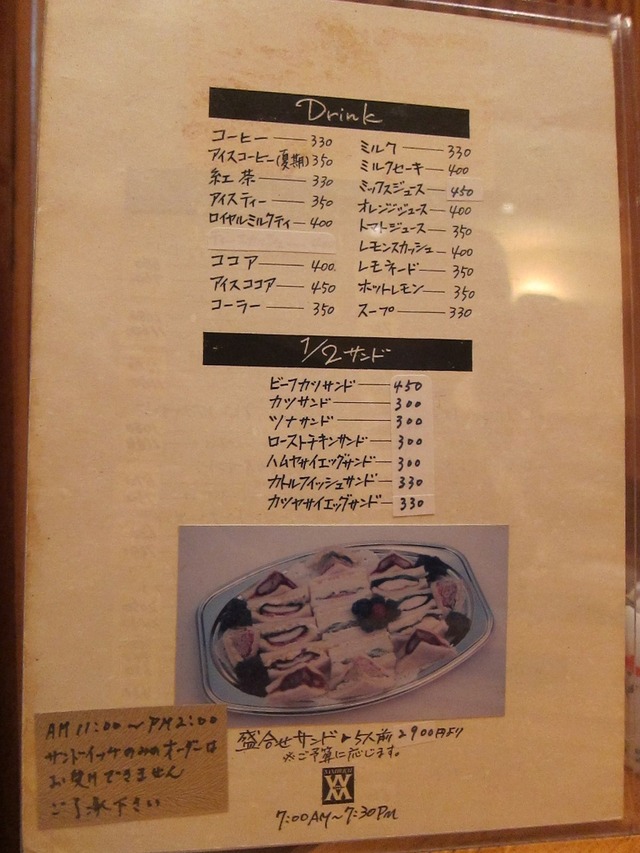 Drink
コーヒー 330
アイスコーヒー(夏期) 350
紅茶 330
アイスティー 350
ロイヤルミルクティ 400
ココア 400
アイスココア 450
コーラー 350
ミルク 330
ミルクセーキ 400
ミックスジュース 450
オレンジジュース 400
トマトジュース 350
レモンスカッシュ 400
レモネード 350
ホットレモン 350
スープ 330
1/2サンド
ビーフカツサンド 450
カツサンド 300
ツナサンド 300
ローストチキンサンド 300
ハムヤサイエッグサンド 300
カトルフィッシュサンド 330
カツヤサイエッグサンド 330
盛合せサンド 5人前 2900円より
※ご予算に応じます。
7:00AM~7:30PM
AM 11:00~PM2:00
サンドイッチのみのオーダーは
お受けできません
ご了承下さい